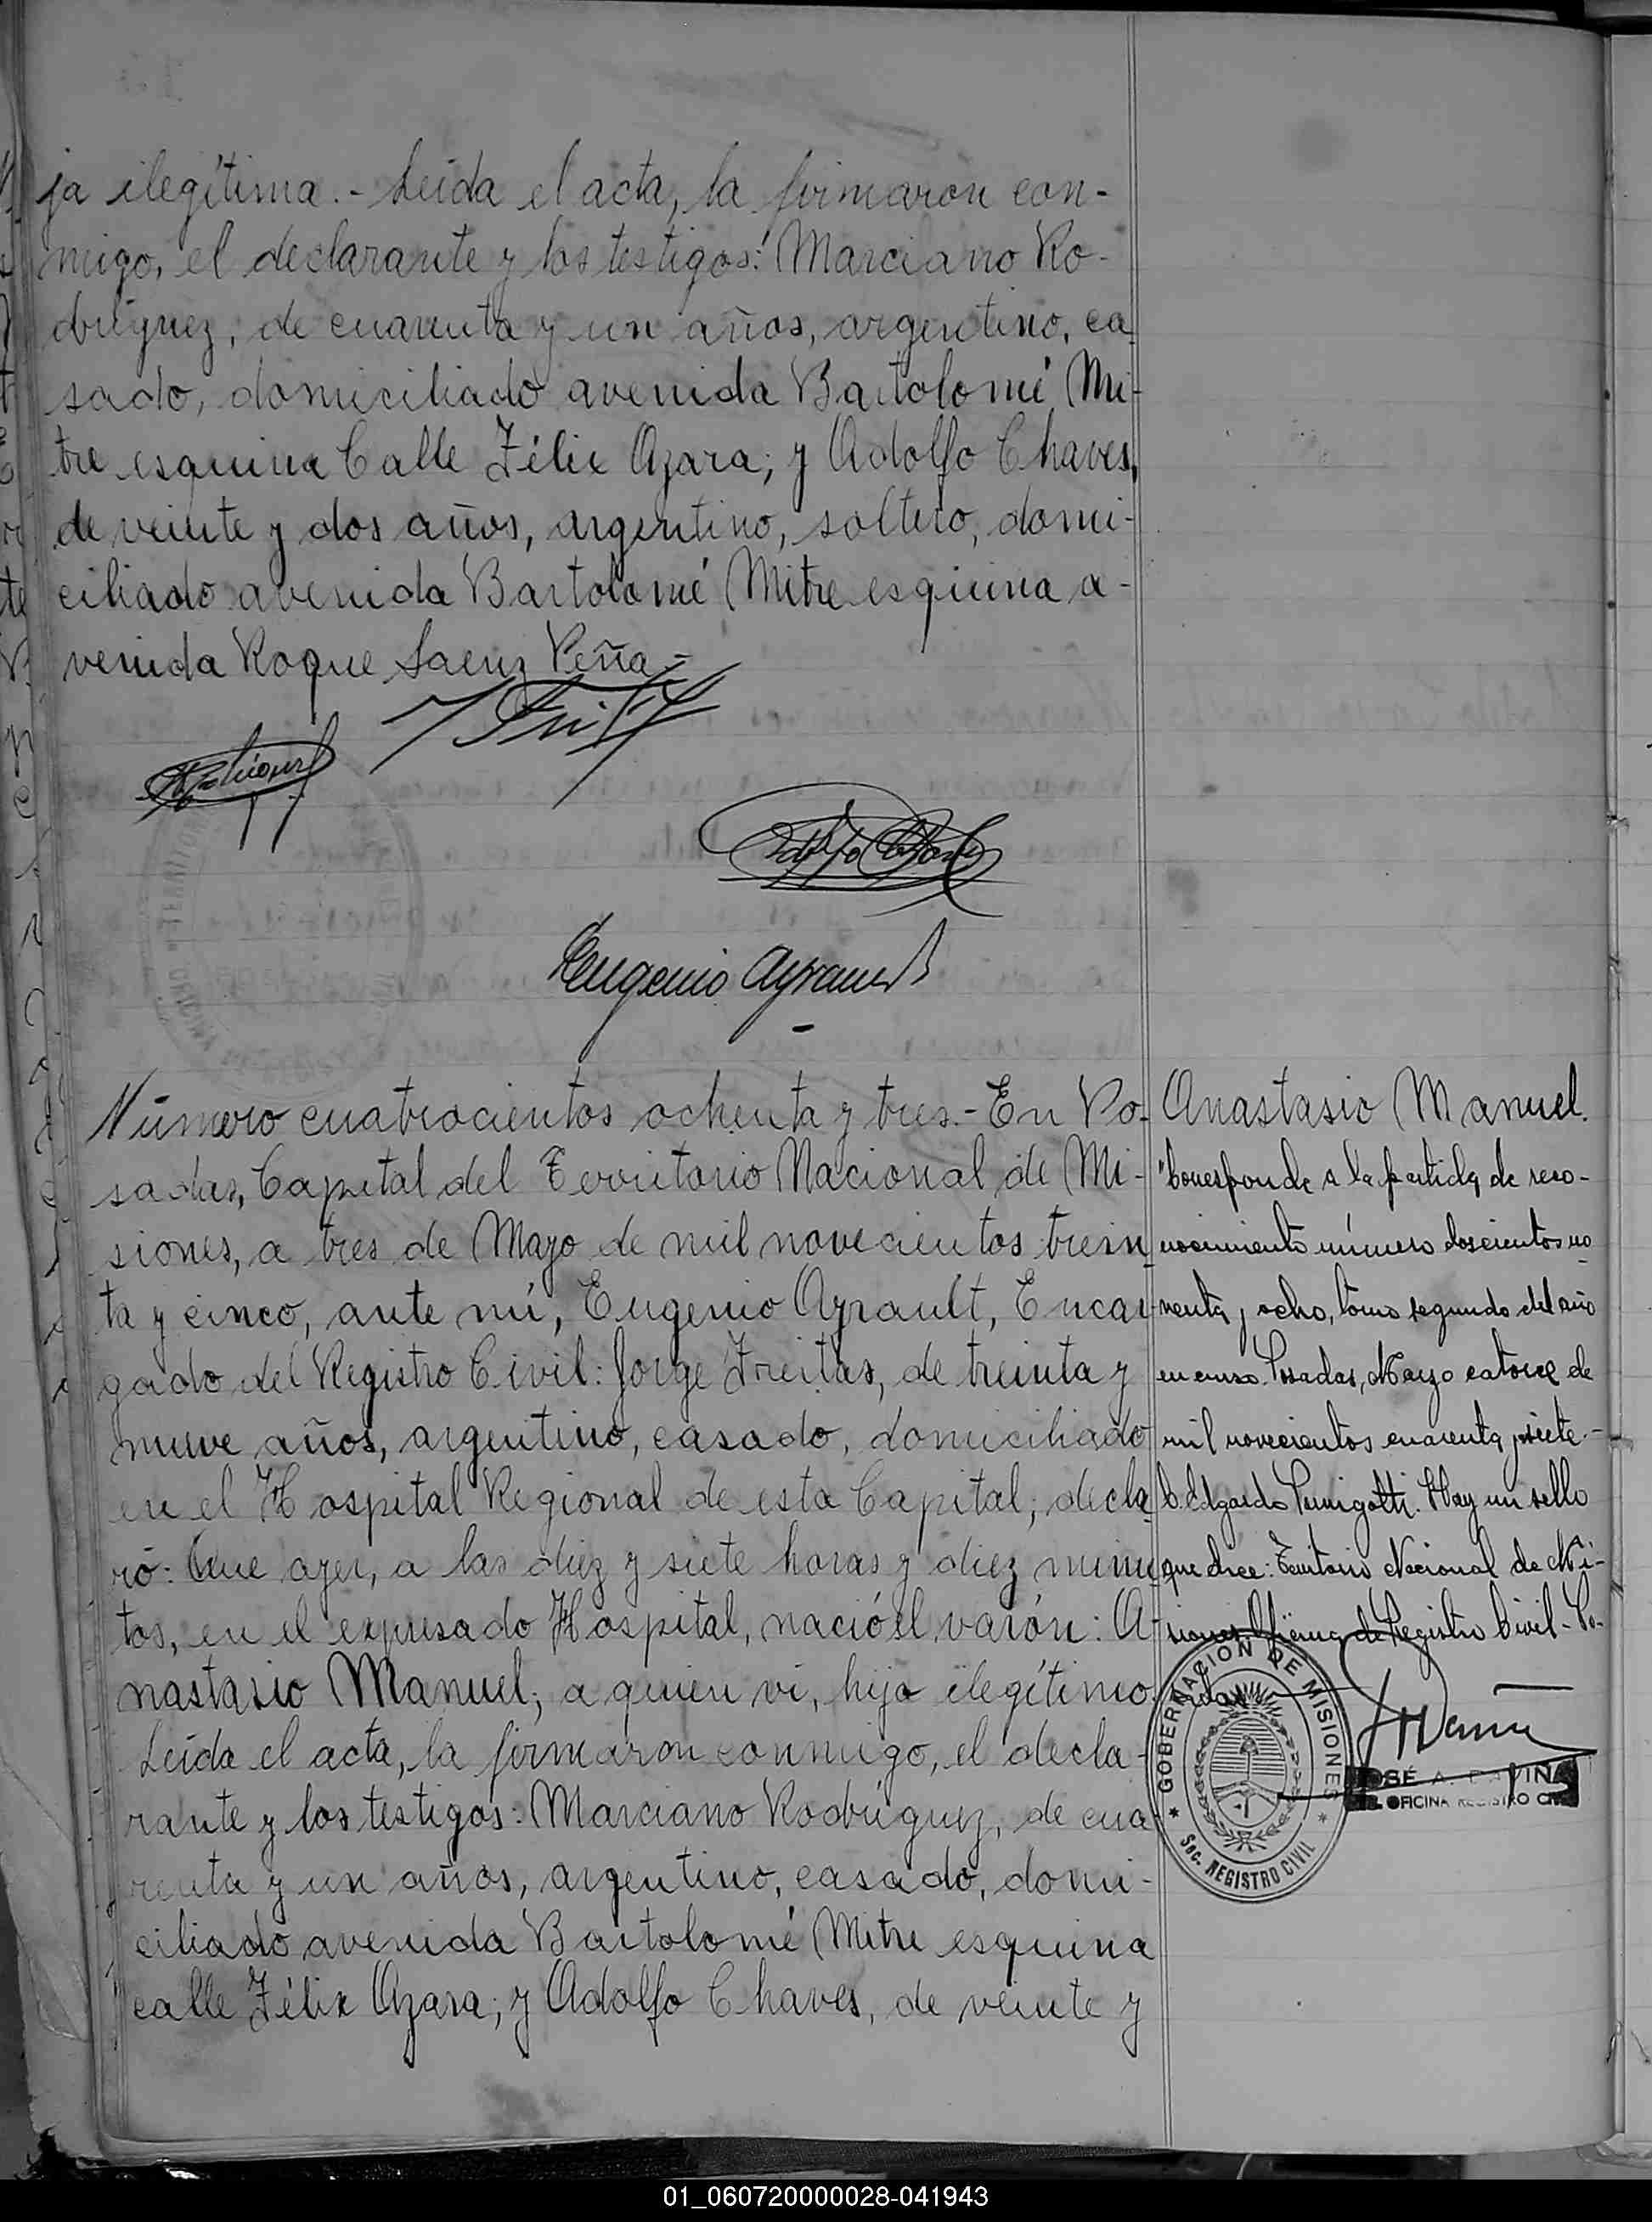 ja ilegítima.- Leída el acta, la firmaron con-
migo, el declarante y los testigos: Marciano Ro-
dríguez, de cuarenta y un años, argentino, ca
sado, domiciliado avenida Bartolomé Mi-
tre esquina Calle Félix Azara; y Adolfo Chaves,
de veinte y dos años, argentino, soltero, domi-
ciliado avenida Bartolomé Mitre esquina a-
venida Roque Saenz Peña.-
Adolfo Chaves
Eugenio Ayrault
Número cuatrocientos ochenta y tres.- En Po-
sadas, Capital del Territorio Nacional de Mi-
siones, a tres de Mayo de mil novecientos trein
ta y cinco, ante mí, Eugenio Ayrault, Encar-
gado del Registro Civil: Jorge Freitas, de treinta y
nueve años, argentino, casado, domiciliado
en el Hospital Regional de esta Capital, decla
ró: Que ayer, a las diez y siete horas y diez minu
tos, en el expresado Hospital, nació el varón: A-
nastasio Manuel; a quien vi, hijo ilegítimo.
Leída el acta, la firmaron conmigo, el decla-
rante y los testigos: Marciano Rodríguez, de cua-
renta y un años, argentino, casado, domi-
ciliado avenida Bartolomé Mitre esquina
calle Félix Azara; y Adolfo Chaves, de veinte y
Anastasio Manuel.
"Corresponde a la partida de reco-
nocimiento número doscientos no
venta y ocho, tomo segundo del año
en curso. Posadas, Marzo catorce de
mil novecientos cuarenta y siete.-
Edgardo Hay un sello
que dice: Territorio Nacional de Mi-
siones Oficina de Registro Civil - Po-
sadas
GOBERNACION DE MISIONES
Sec. REGISTRO CIVIL
JOSÉ A.
OFICINA REGISTRO CIVIL
01_060720000028-041943